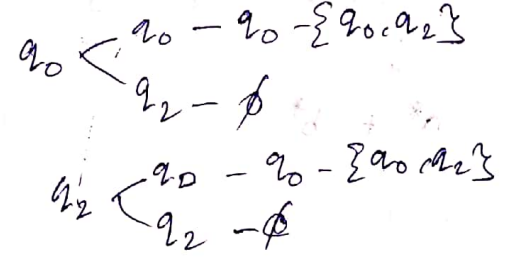 q₀ < q₀ - q₀ - {q₀, q₂}
q₂ - ϕ
q₂ < q₀ - q₀ - {q₀, q₂}
q₂ - ϕ